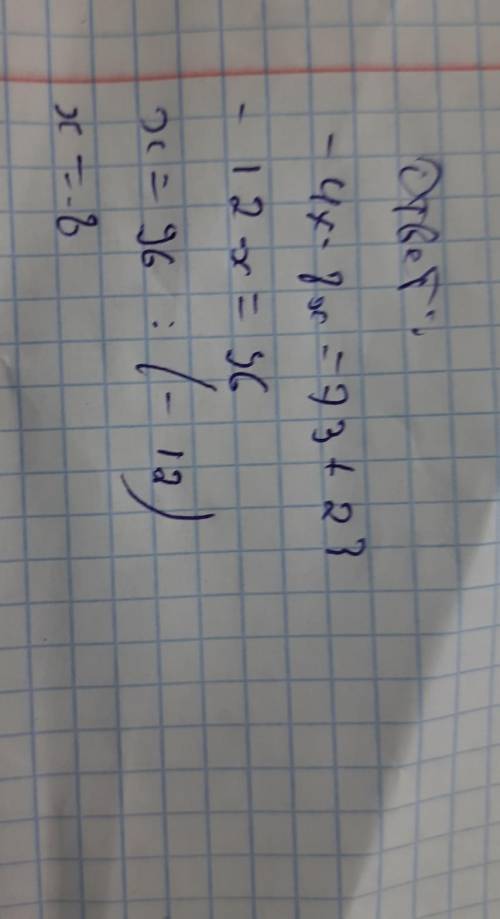 Ответ:
- 4x - 8x = 73 + 23
- 12 x = 96
x = 96 : (- 12)
x = -8